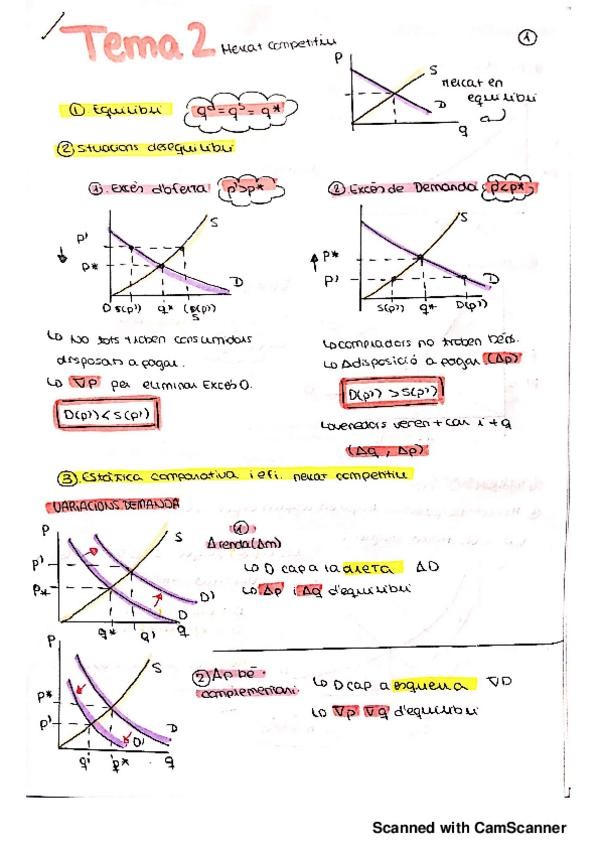 Tema 2 Mercat competitiu
1
P
S
mercat en
equilibri
D
q
① Equilibri qᵈ = qˢ = q*
② Situacions desequilibri
①. Excés d'oferta p'>p*
② Excés de Demanda p'<p*
S
P'
P*
D
O S(p') q* (D(p'))
S
S
P*
P'
D
S(p') q* D(p')
↳ No tots troben consumidors
disposats a pagar.
↳ ∇p per eliminar Excés O.
D(p') < S(p')
↳ compradors no troben béns.
↳ Δ disposició a pagar (Δp)
D(p') > S(p')
↳ venedors veren + car i + q
(Δq, Δp)
③. Estàtica comparativa i efi. mercat competitiu
VARIACIONS DEMANDA
P
S
P'
P*
D'
D
q* q' q
①
Δ renda (Δm)
↳ D cap a la dreta ΔD
↳ Δp i Δq d'equilibri
P
S
P*
P'
D
D'
q' p* q
② Δp bé
complementari.
↳ D cap a esquerra ∇D
↳ ∇p ∇q d'equilibri
Scanned with CamScanner